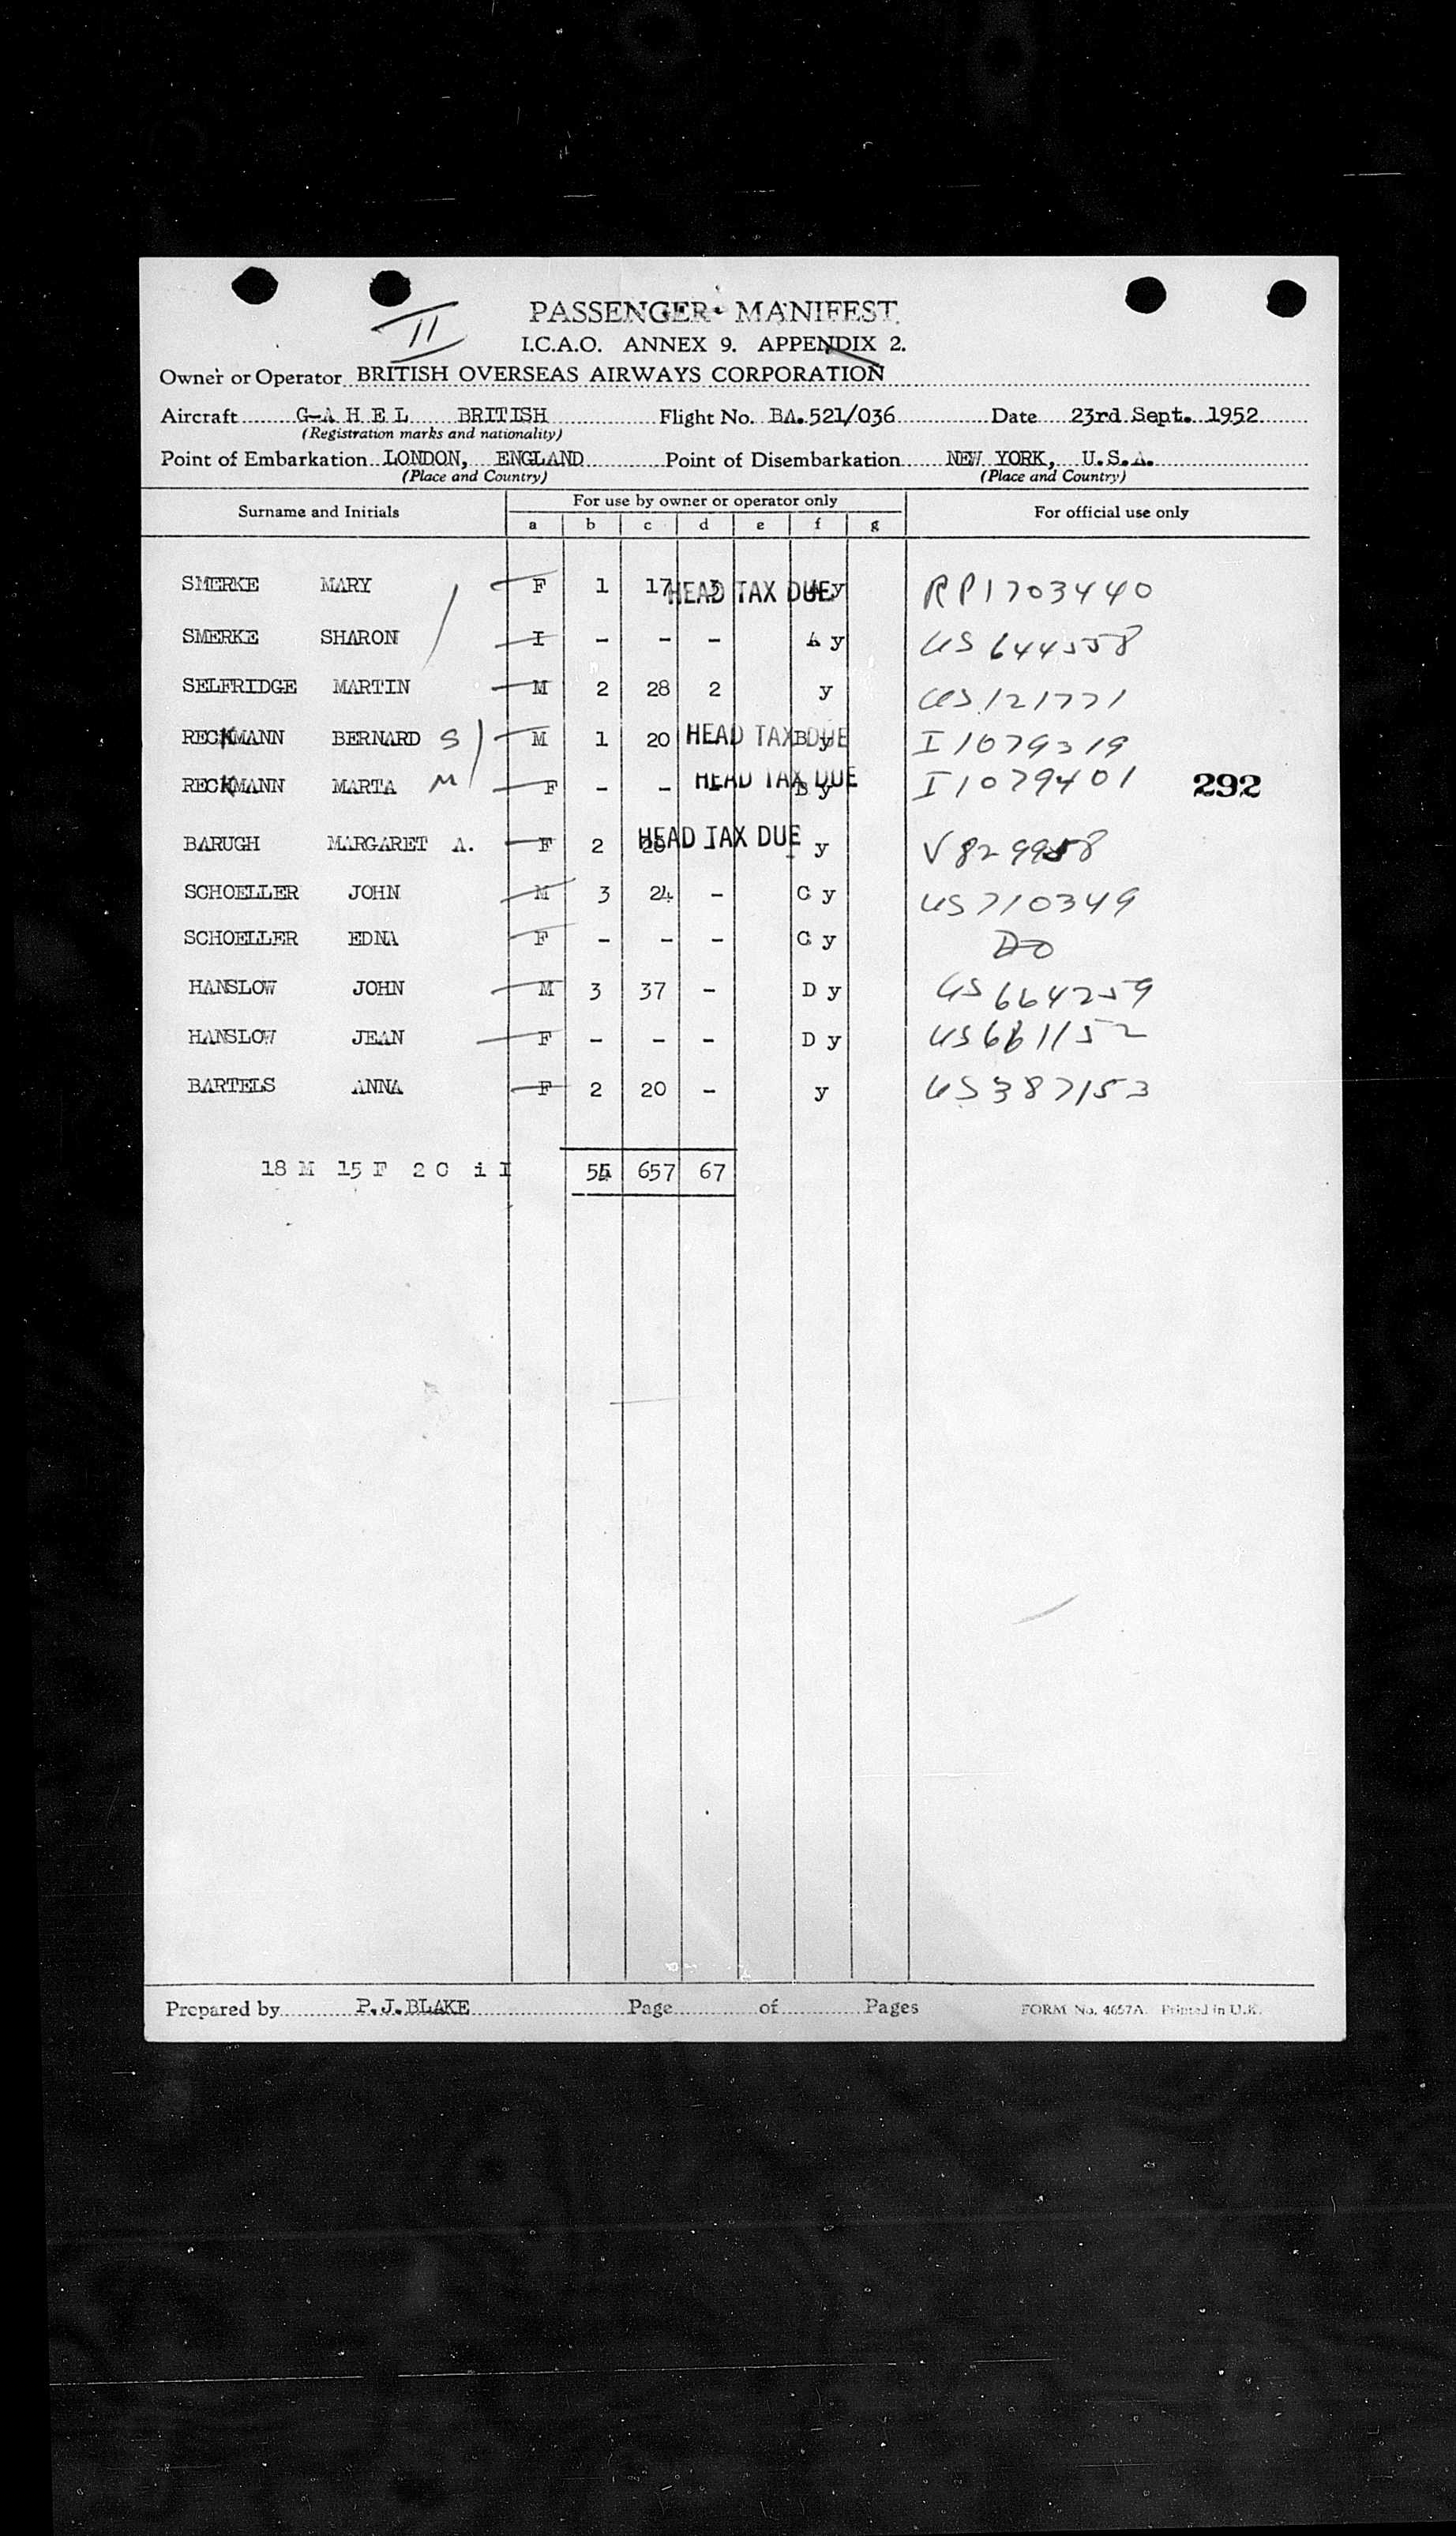 II
PASSENGER MANIFEST
I.C.A.O. ANNEX 9. APPENDIX 2.
Owner or Operator BRITISH OVERSEAS AIRWAYS CORPORATION
Aircraft G-A H E L BRITISH Flight No. BA.521/036 Date 23rd Sept. 1952
(Registration marks and nationality)
Point of Embarkation LONDON, ENGLAND Point of Disembarkation NEW YORK, U.S.A.
(Place and Country) (Place and Country)
Surname and Initials For use by owner or operator only For official use only
a b c d e f g
SMERKE MARY F 1 17 3 HEAD TAX DUE A y RP1703440
SMERKE SHARON I - - - A y US 644558
SELFRIDGE MARTIN M 2 28 2 y US 121771
RECKMANN BERNARD S M 1 20 HEAD TAX DUE B y I 1079319
RECKMANN MARTA M F - - HEAD TAX DUE B y I 1079401 292
BARUGH MARGARET A. F 2 HEAD TAX DUE y V 829958
SCHOELLER JOHN M 3 24 - C y US 710349
SCHOELLER EDNA F - - - C y DO
HANSLOW JOHN M 3 37 - D y US 664259
HANSLOW JEAN F - - - D y US 661152
BARTELS ANNA F 2 20 - y US 387153
18 M 15 F 2 C i I 657 67
Prepared by P.J.BLAKE Page of Pages FORM No. 4657A. Printed in U.K.